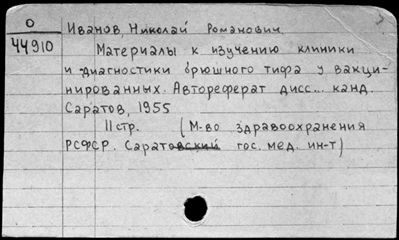 О
44910
Иванов, Николай Романович.
Материалы к изучению клиники
и диагностики брюшного тифа у вакци-
нированных. Автореферат дисс... канд.
Саратов, 1955
11 стр. (М-во здравоохранения
РСФСР. Саратовский гос. мед. ин-т)